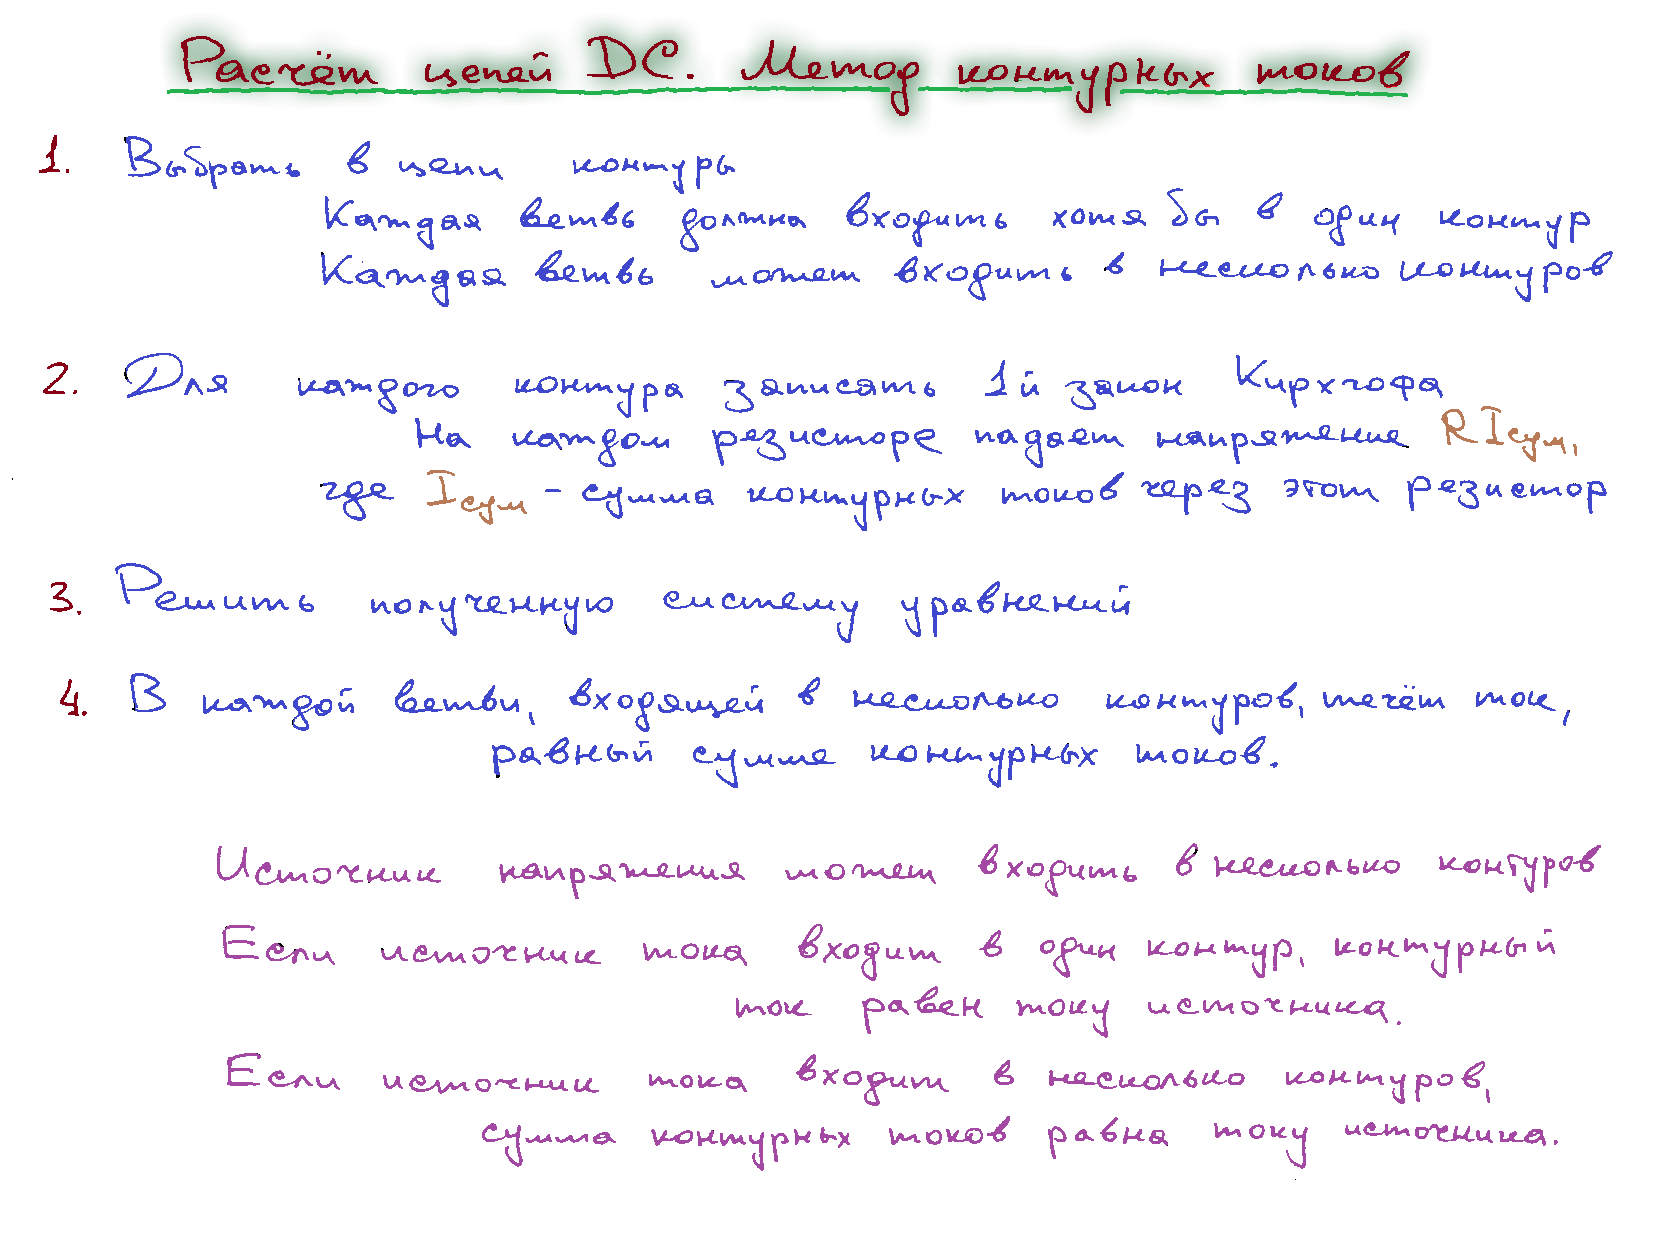 Расчёт цепей DC. Метод контурных токов
1. Выбрать в цепи контуры
Каждая ветвь должна входить хотя бы в один контур
Каждая ветвь может входить в несколько контуров
2. Для каждого контура записать 1й закон Кирхгофа
На каждом резисторе падает напряжение RIсум,
где Iсум - сумма контурных токов через этот резистор
3. Решить полученную систему уравнений
4. В каждой ветви, входящей в несколько контуров, течёт ток,
равный сумме контурных токов.
Источник напряжения может входить в несколько контуров
Если источник тока входит в один контур, контурный
ток равен току источника.
Если источник тока входит в несколько контуров,
сумма контурных токов равна току источника.